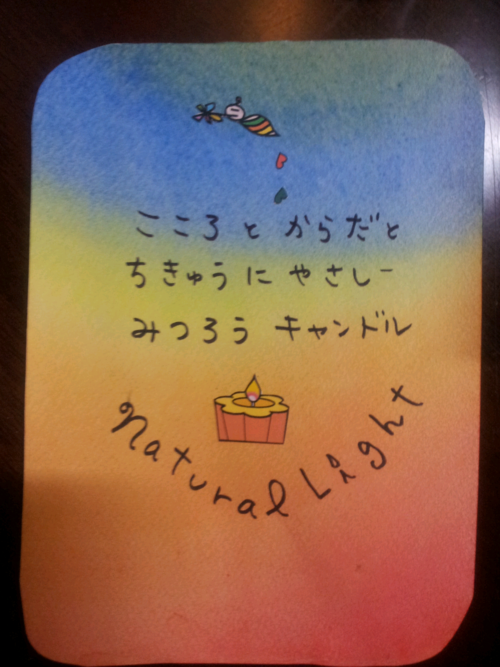 こころ と からだと
ちきゅう に やさしー
みつろう キャンドル
Natural Light